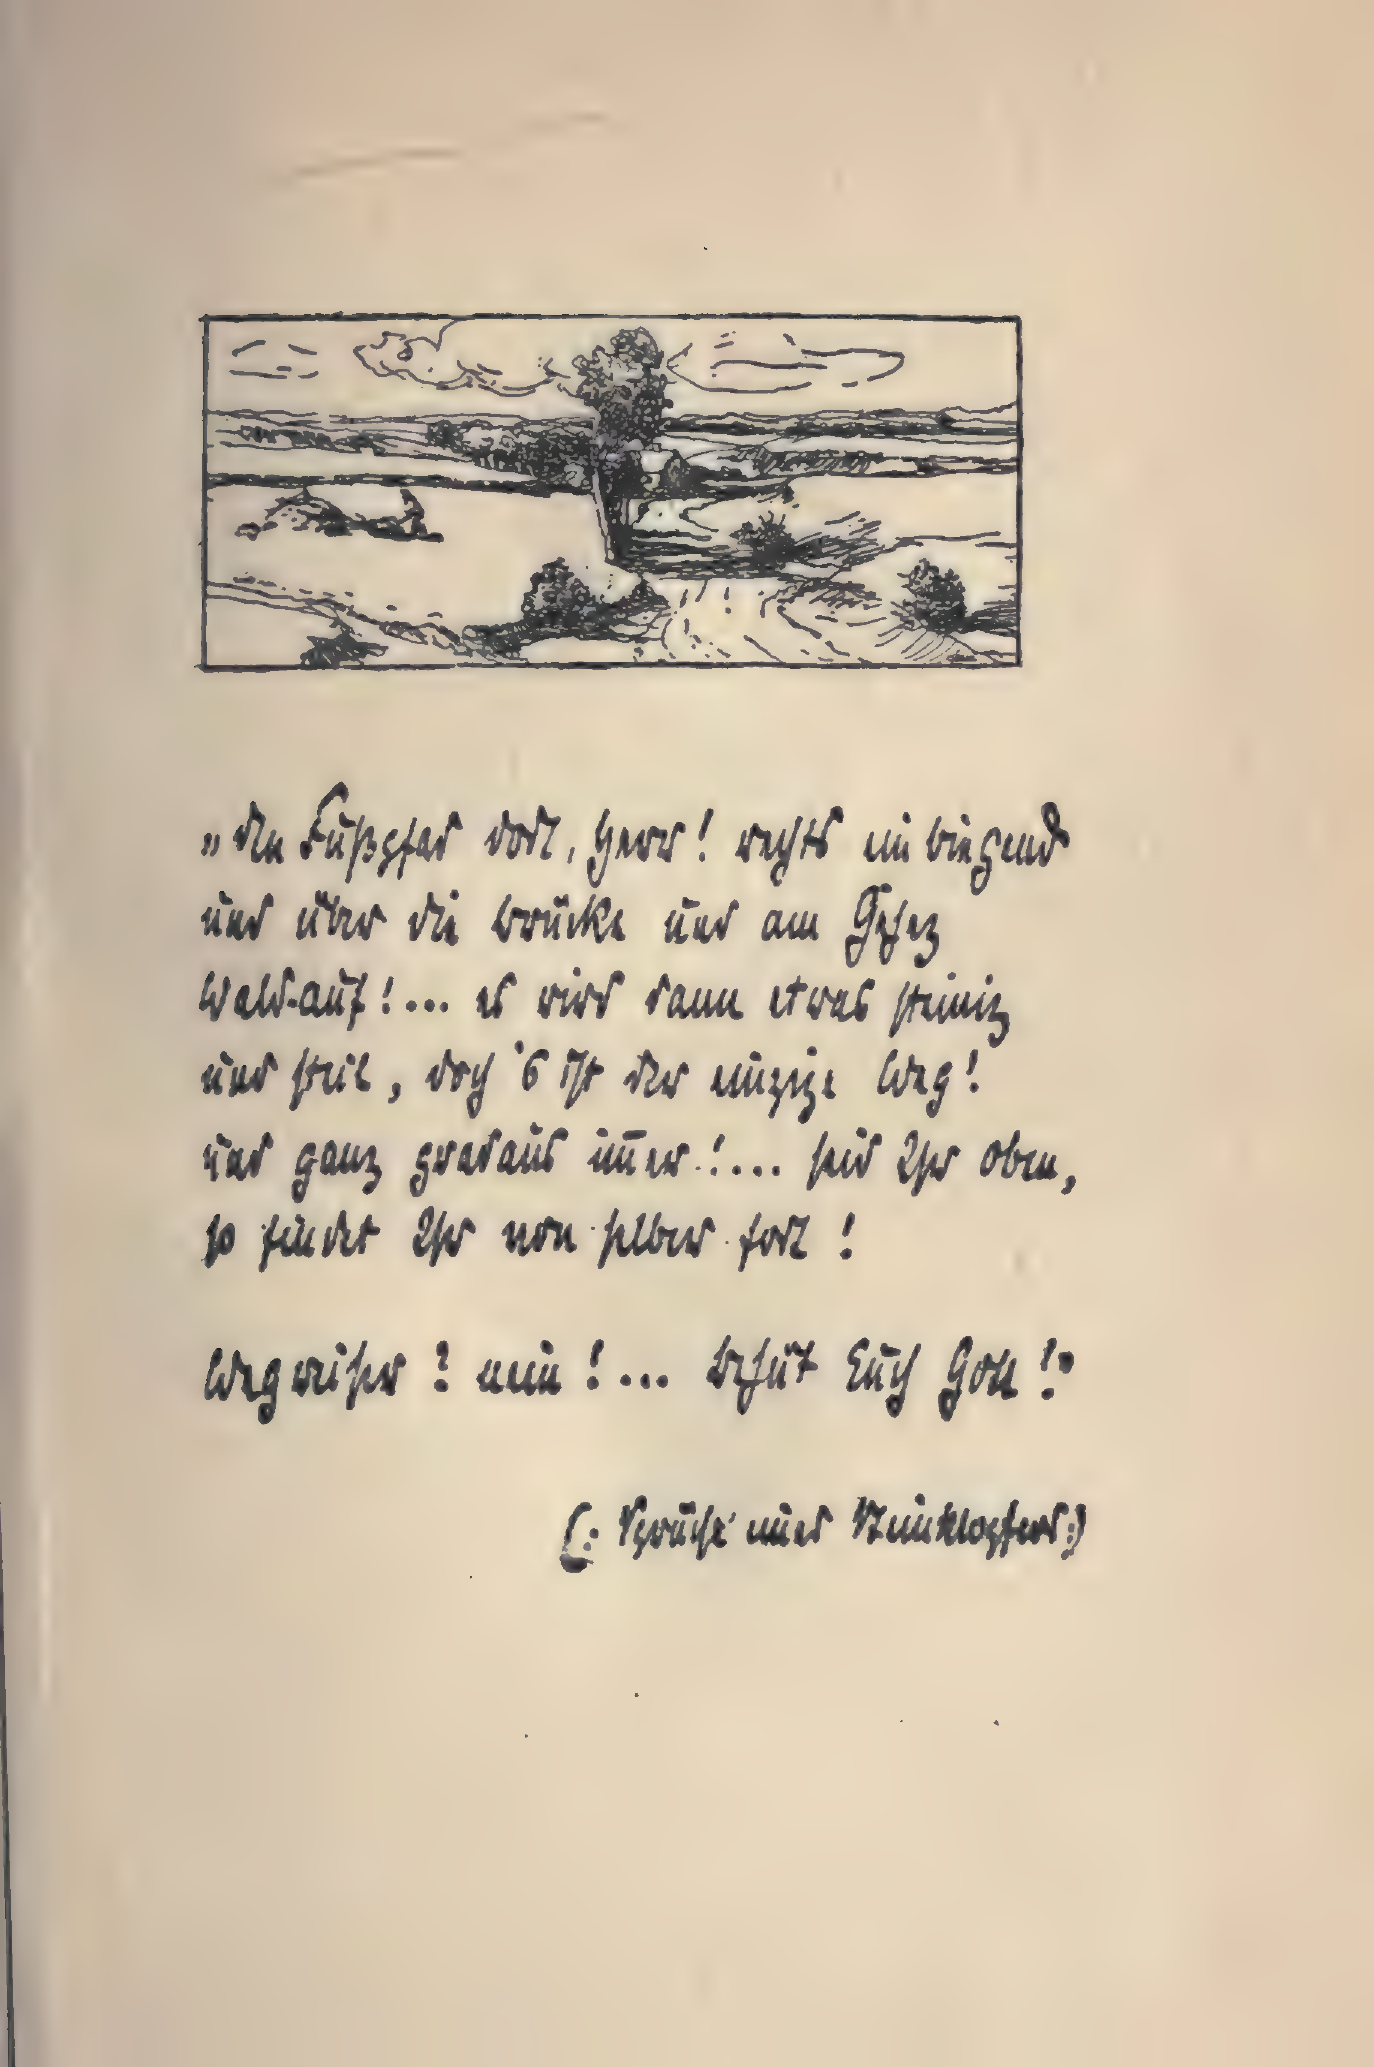 „den Fußpfad dort, Herr! rechts einbiegend
und über die Brücke und am Geheg
Wald-auf!... es wird dann etwas steinig
und steil, doch 's ist der einzige Weg!
und ganz gradaus im̅er!... seid Ihr oben,
so findet Ihr von selber fort!
Wegweiser? nein!... behüt Euch Gott!"
(: Sprüche eines Steinklopfers:)